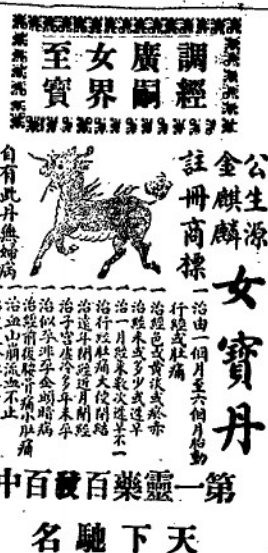 調經
廣嗣
女界
至寶
公生源
金麒麟
女寶丹
註冊商標
自有此丹無婦病
一治由一個月至六個月胎動
行經或肚痛
一治經色或黃淡或瘀赤
一治經來或多少或遲早
一治一月經來数次遲早不一
一治行經肚痛大便閉結
一治遠年閉經近月閉經
一治子宮虛冷多年未孕
一治似孕非孕全頭暗病
一治經前後腰骨痛肚痛
一治血山崩流血不止
第一靈藥百發百中
天下馳名